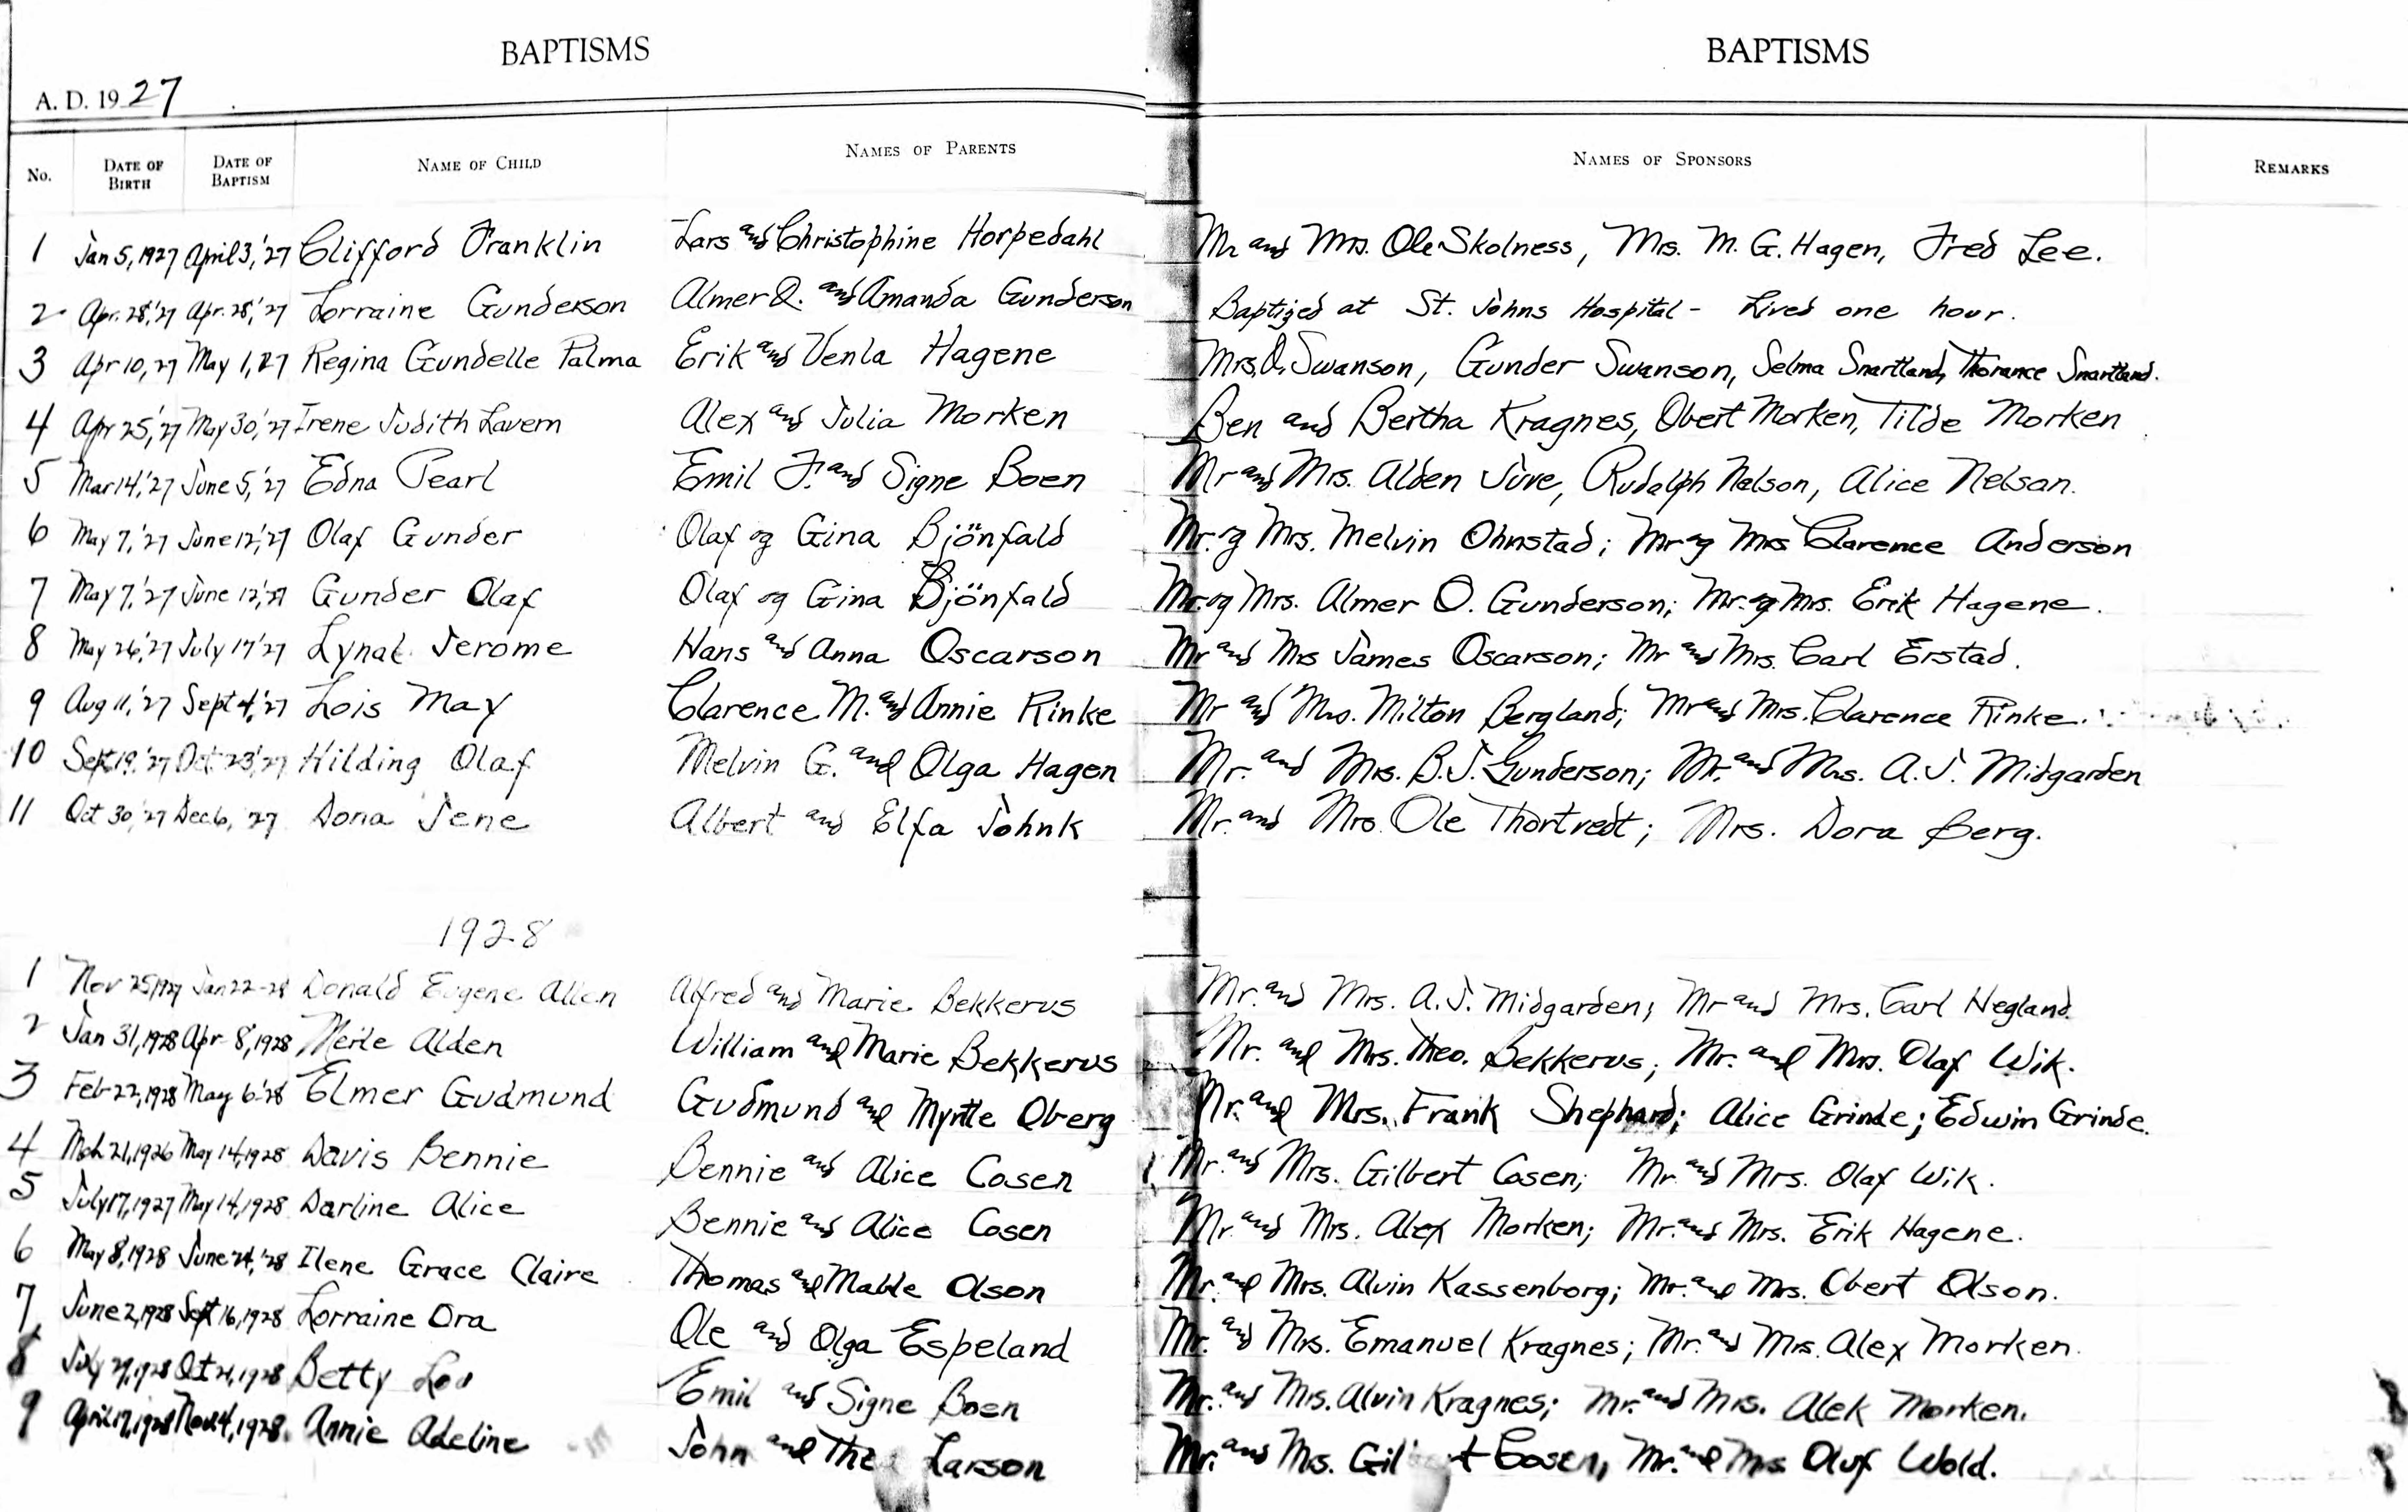 BAPTISMS
A. D. 1927
No. DATE OF BIRTH DATE OF BAPTISM NAME OF CHILD NAMES OF PARENTS
1 Jan 5, 1927 April 3, '27 Clifford Franklin Lars and Christophine Horpedahl
2 Apr. 28, '27 Apr. 28, '27 Lorraine Gunderson Almer O. and Amanda Gunderson
3 Apr 10, 27 May 1, 27 Regina Gundelle Palma Erik and Venla Hagene
4 Apr 25, '27 May 30, '27 Irene Judith Lavern Alex and Julia Morken
5 Mar 14, '27 June 5, '27 Edna Pearl Emil F. and Signe Boen
6 May 7, '27 June 12, '27 Olaf Gunder Olaf og Gina Bjönfald
7 May 7, '27 June 12, '27 Gunder Olaf Olaf og Gina Bjönfald
8 May 26, '27 July 17 '27 Lynal Jerome Hans and Anna Oscarson
9 Aug 11, '27 Sept 4, '27 Lois May Clarence M. and Annie Rinke
10 Sept 19, '27 Oct 23, '27 Hilding Olaf Melvin G. and Olga Hagen
11 Oct 30, '27 Dec 6, '27 Dona Jene Albert and Elfa Johnk
1928
1 Nov 25, 1927 Jan 22-28 Donald Eugene Allen Alfred and Marie Bekkerus
2 Jan 31, 1928 Apr 8, 1928 Merle Alden William and Marie Bekkerus
3 Feb 22, 1928 May 6 '28 Elmer Gudmund Gudmund and Myrtle Oberg
4 Mch 21, 1926 May 14, 1928 Davis Bennie Bennie and Alice Cosen
5 July 17, 1927 May 14, 1928 Darline Alice Bennie and Alice Cosen
6 May 8, 1928 June 24, '28 Ilene Grace Claire Thomas and Mable Olson
7 June 2, 1928 Sept 16, 1928 Lorraine Ora Ole and Olga Espeland
8 July 29, 1928 Oct 21, 1928 Betty Lou Emil and Signe Boen
9 April 17, 1928 Nov 4, 1928. Annie Adeline John and Larson
BAPTISMS
NAMES OF SPONSORS REMARKS
Mr and Mrs. Ole Skolness, Mrs. M. G. Hagen, Fred Lee.
Baptized at St. Johns Hospital - Lived one hour.
Mrs. O. Swanson, Gunder Swanson, Selma Snartland, Thorance Snartland.
Ben and Bertha Kragnes, Obert Morken, Tilde Morken
Mr and Mrs. Alden Juve, Rudolph Nelson, Alice Nelson.
Mr. og Mrs. Melvin Ohnstad; Mr og Mrs Clarence Anderson
Mr. og Mrs. Almer O. Gunderson; Mr. og Mrs. Erik Hagene.
Mr and Mrs James Oscarson; Mr and Mrs. Carl Erstad.
Mr and Mrs. Milton Bergland; Mr and Mrs. Clarence Rinke.
Mr. and Mrs. B. J. Gunderson; Mr. and Mrs. A. J. Midgarden
Mr. and Mrs. Ole Thortvedt; Mrs. Dora Berg.
Mr. and Mrs. A. J. Midgarden; Mr and Mrs. Carl Hegland.
Mr. and Mrs. Theo. Bekkerus; Mr. and Mrs. Olaf Wik.
Mr. and Mrs. Frank Shephard; Alice Grinde; Edwin Grinde.
Mr. and Mrs. Gilbert Cosen; Mr. and Mrs. Olaf Wik.
Mr. and Mrs. Alex Morken; Mr. and Mrs. Erik Hagene.
Mr. and Mrs. Alvin Kassenborg; Mr. and Mrs. Obert Olson.
Mr. and Mrs. Emanuel Kragnes; Mr. and Mrs. Alex Morken.
Mr. and Mrs. Alvin Kragnes; Mr. and Mrs. Alek Morken.
Mr. and Mrs. Cosen, Mr. and Mrs Oluf Wold.